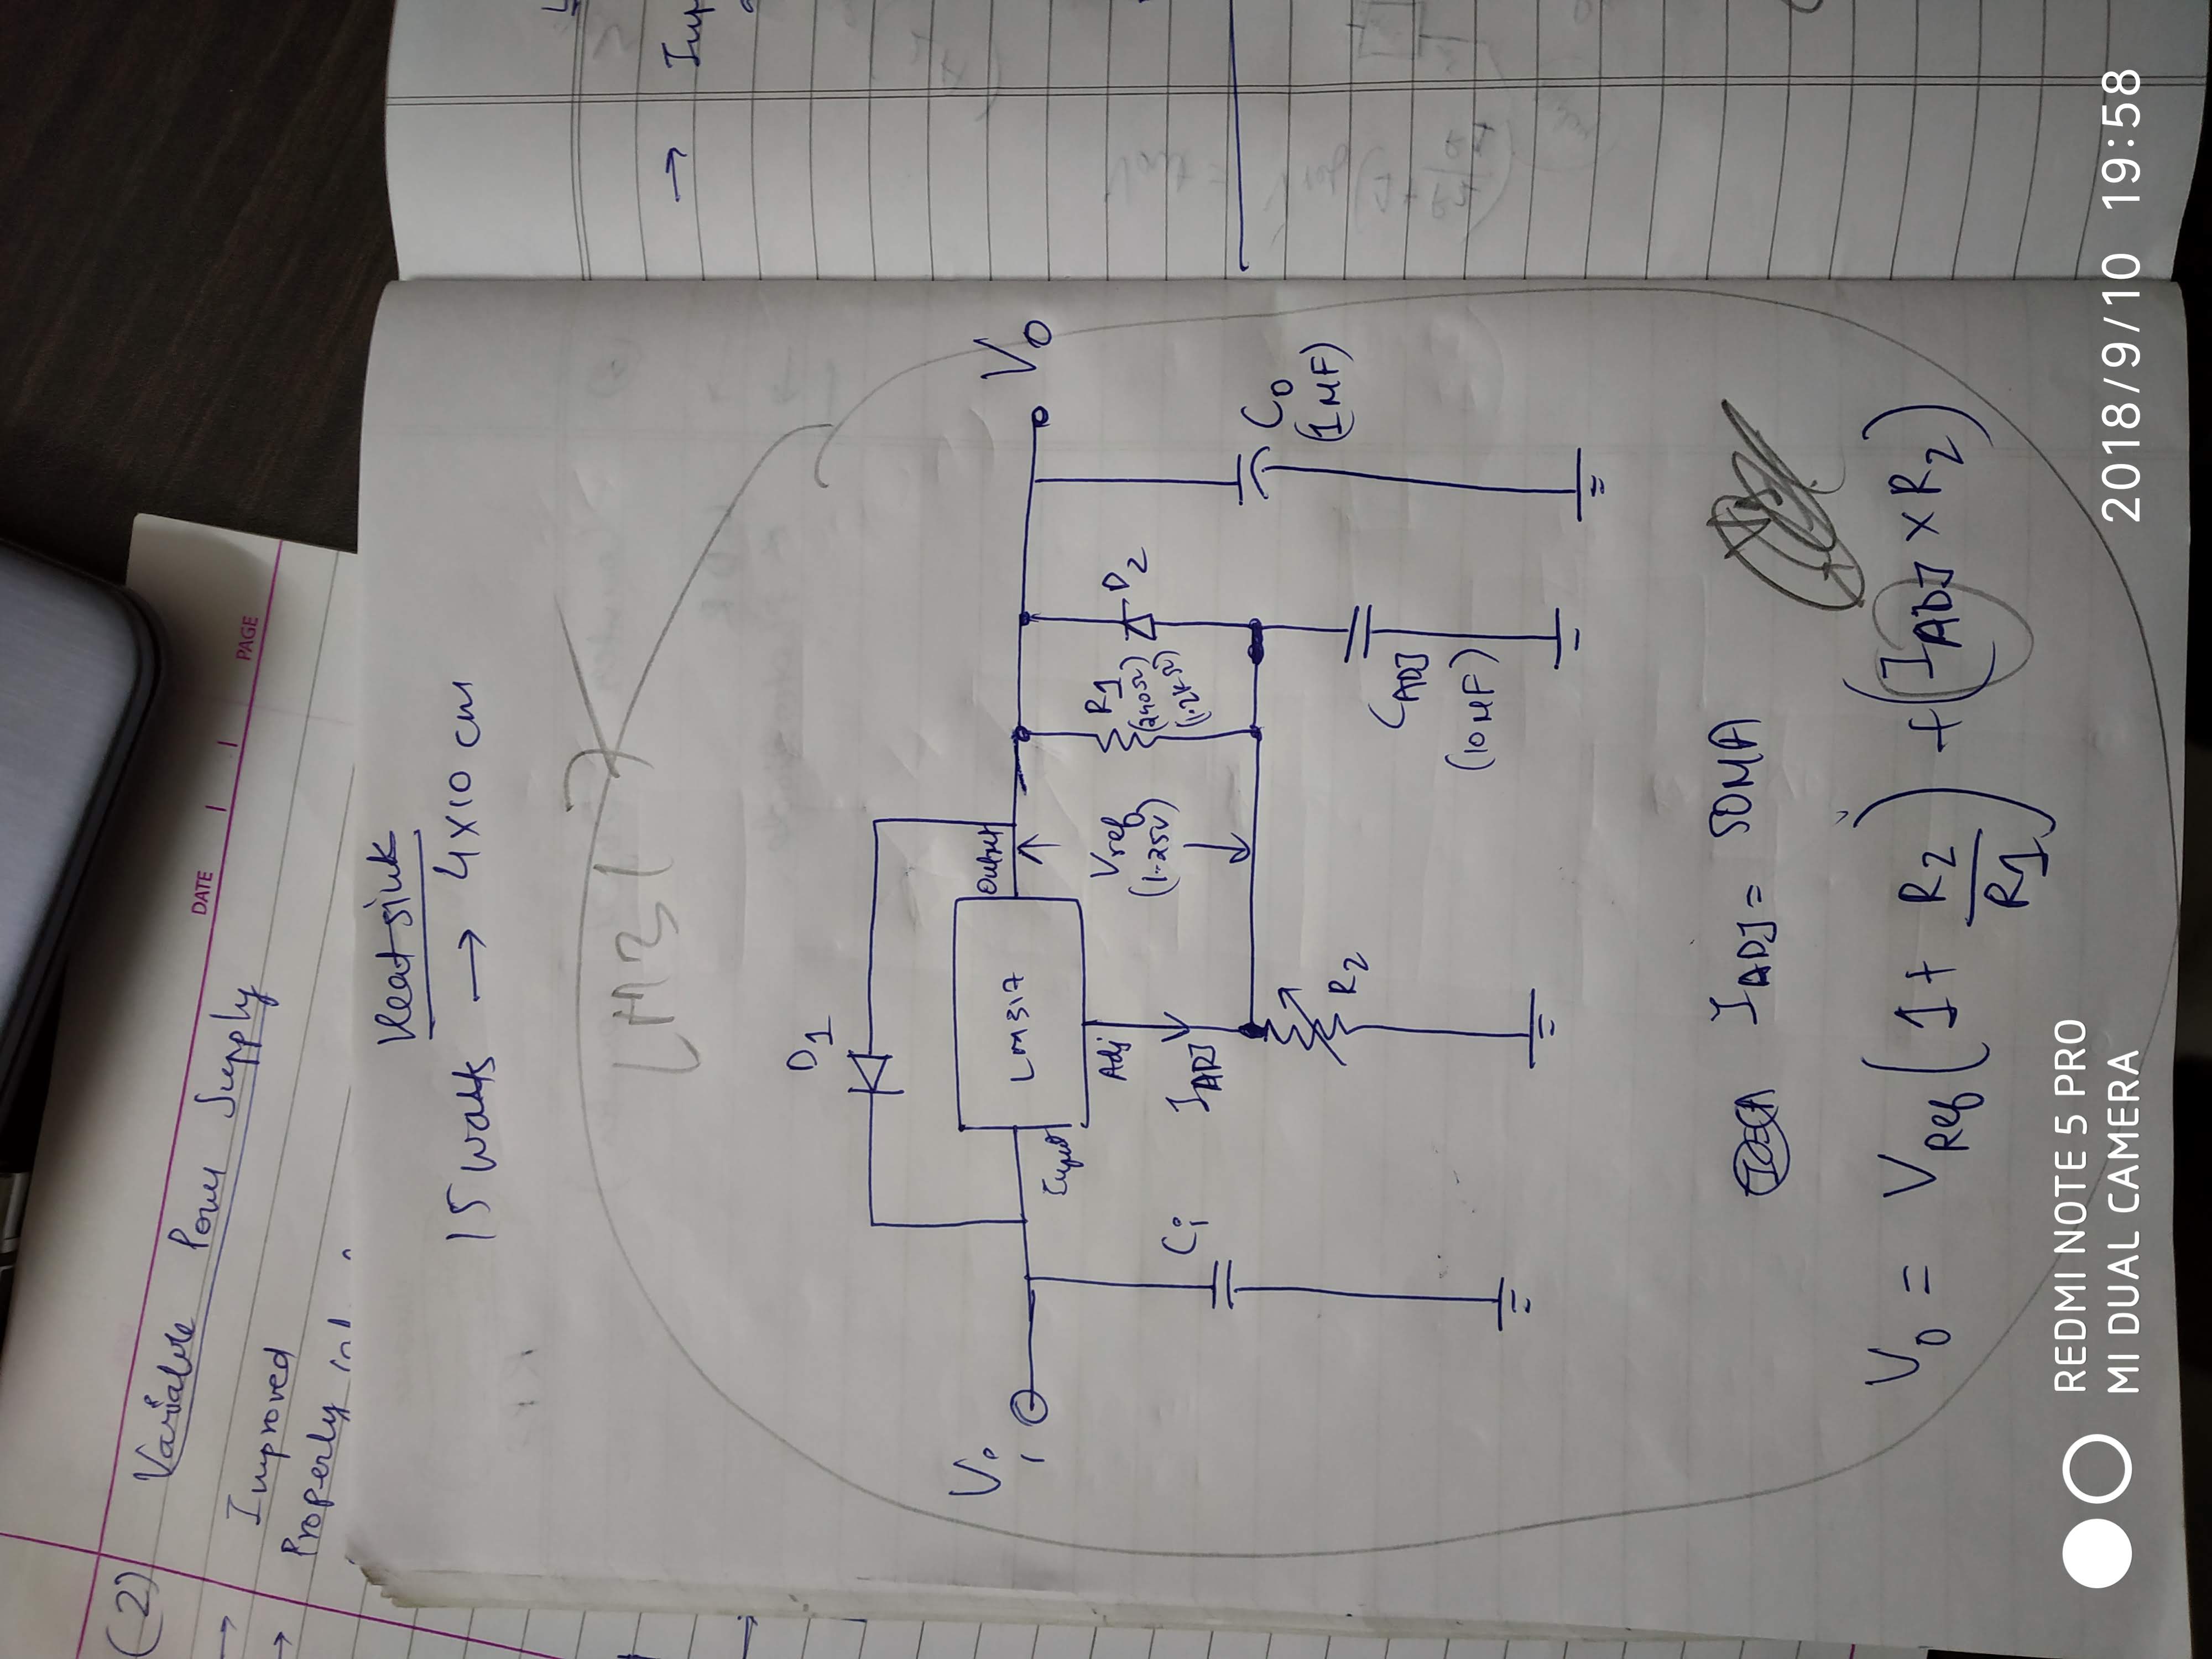 (2) Variable Power Supply
DATE
PAGE
→ Improved
→ Properly
Heatsink
15 watts → 4x10 cm
LM317
D1
Vi
Output
LM317
Input
Adj
Vo
Vref
(1.25V)
R1
(240Ω)
(1.2KΩ)
D2
Ci
IADJ
R2
CADJ
(10µF)
Co
(1µF)
IADJ = 50µA
Vo = VRef (1 + R2/R1) + (IADJ × R2)
REDMI NOTE 5 PRO
MI DUAL CAMERA
2018/9/10 19:58